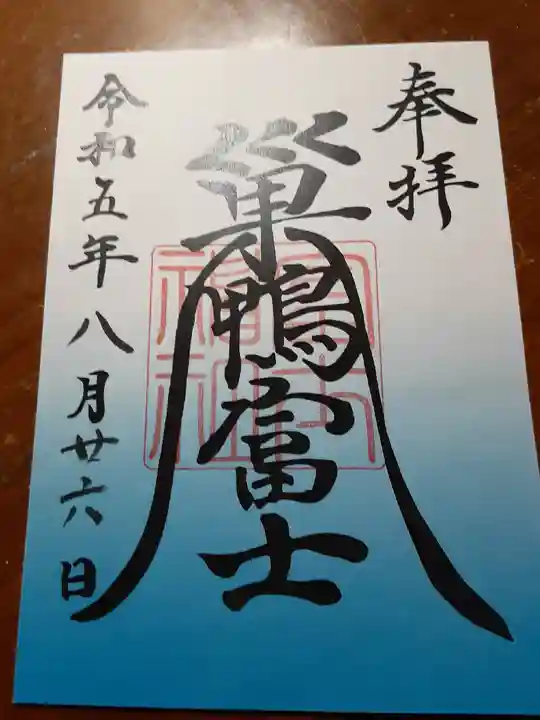 奉拝
巣鴨富士
令和五年八月廿六日